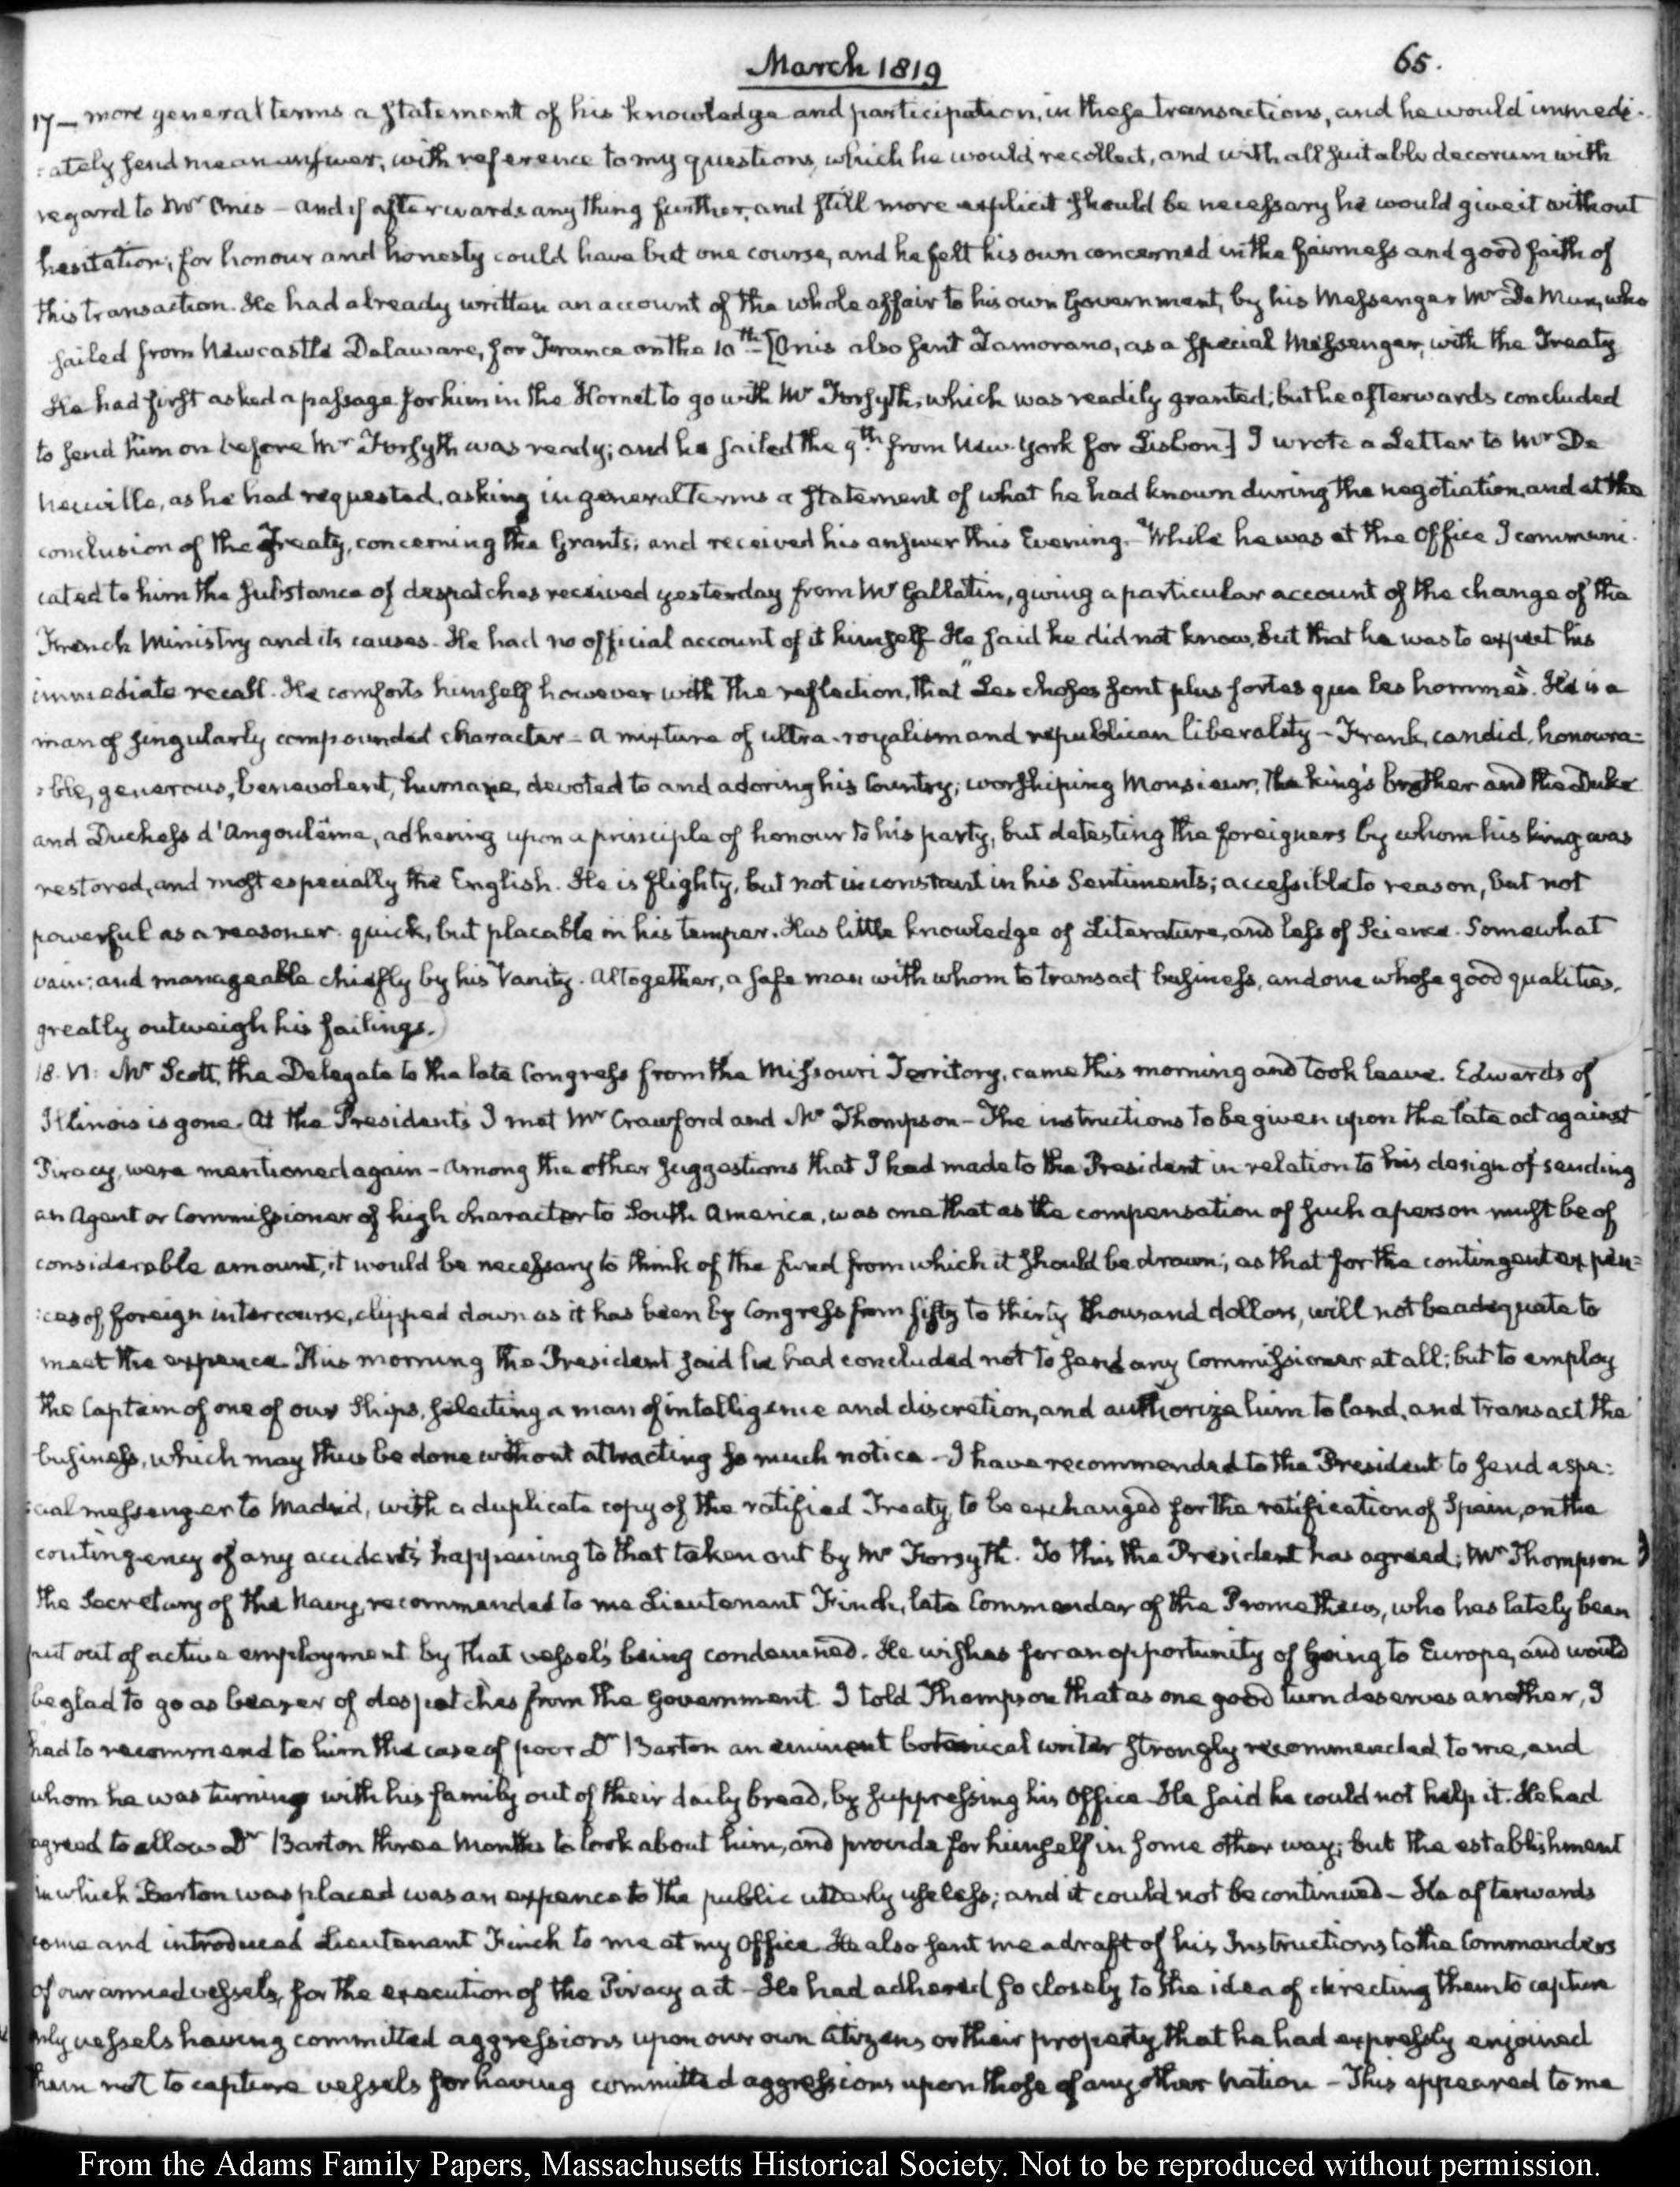 March 1819
65.
17— more general terms a statement of his knowledge and participation, in these transactions, and he would immedi-
:ately send me an answer, with reference to my questions, which he would recollect, and with all suitable decorum with
regard to Mr Onis – and if afterwards any thing further, and still more explicit should be necessary he would give it without
hesitation; for honour and honesty could have but one course, and he felt his own concerned in the fairness and good faith of
this transaction. He had already written an account of the whole affair to his own Government, by his Messenger Mr De Mun, who
sailed from Newcastle Delaware, for France on the 10th [Onis also sent Zamorano, as a special Messenger, with the Treaty
He had first asked a passage for him in the Hornet to go with Mr Forsyth, which was readily granted; but he afterwards concluded
to send him on before Mr Forsyth was ready; and he sailed the 9th from New-York for Lisbon] I wrote a Letter to Mr De
Neuville, as he had requested, asking in general Terms a statement of what he had known during the negotiation, and at the
conclusion of the Treaty, concerning the Grants; and received his answer this Evening. While he was at the Office I communi-
cated to him the substance of despatches received yesterday from Mr Gallatin, giving a particular account of the change of the
French Ministry and its causes. He had no official account of it himself. He said he did not know, but that he was to expect his
immediate recall. He comforts himself however with the reflection, that "Les choses sont plus fortes que les hommes". He is a
man of singularly compounded character – a mixture of ultra-royalism and republican liberality – Frank, candid, honoura=
:ble, generous, benevolent, humane, devoted to and adoring his Country; worshiping Monsieur, the king's brother and the Duke
and Duchess d'Angoulême, adhering upon a principle of honour to his party, but detesting the foreigners by whom his king was
restored, and most especially the English. He is flighty, but not inconstant in his Sentiments; accessible to reason, but not
powerful as a reasoner. quick, but placable in his temper. Has little knowledge of Literature, and less of Science. Somewhat
vain; and manageable chiefly by his Vanity. Altogether, a safe man with whom to transact business, and one whose good qualities,
greatly outweigh his failings.
18. VI: Mr Scott, the Delegate to the late Congress from the Missouri Territory, came this morning and took leave. Edwards of
Illinois is gone. At the President's I met Mr Crawford and Mr Thompson – The instructions to be given upon the late act against
Piracy, were mentioned again – Among the other suggestions that I had made to the President in relation to his design of sending
an Agent or Commissioner of high character to South America, was one that as the compensation of such a person must be of
considerable amount, it would be necessary to think of the fund from which it should be drawn; as that for the contingent expen=
:ces of foreign intercourse, clipped down as it has been by Congress from fifty to thirty thousand dollars, will not be adequate to
meet the expence. This morning the President said he had concluded not to send any Commissioner at all; but to employ
the Captain of one of our Ships, selecting a man of intelligence and discretion, and authorize him to land, and transact the
business, which may thus be done without attracting so much notice – I have recommended to the President to send a spe:
:cial messenger to Madrid, with a duplicate copy of the ratified Treaty, to be exchanged for the ratification of Spain, on the
contingency of any accident's happening to that taken out by Mr Forsyth. To this the President has agreed; Mr Thompson
the Secretary of the Navy, recommended to me Lieutenant Finch, late Commander of the Prometheus, who has lately been
put out of active employment by that vessel's being condemned. He wishes for an opportunity of going to Europe, and would
be glad to go as bearer of despatches from the Government. I told Thompson that as one good turn deserves another, I
had to recommend to him the case of poor Dr Barton an eminent botanical writer strongly recommended to me, and
whom he was turning with his family out of their daily bread, by suppressing his Office. He said he could not help it. He had
agreed to allow Dr Barton three Months to look about him, and provide for himself in some other way; but the establishment
in which Barton was placed was an expence to the public utterly useless; and it could not be continued – He afterwards
come and introduced Lieutenant Finch to me at my Office. He also sent me a draft of his Instructions to the Commanders
of our armed vessels, for the execution of the Piracy act – He had adhered so closely to the idea of directing them to capture
only vessels having committed aggressions upon our own Citizens or their property that he had expressly enjoined
them not to capture vessels for having committed aggressions upon those of any other Nation – This appeared to me
From the Adams Family Papers, Massachusetts Historical Society. Not to be reproduced without permission.